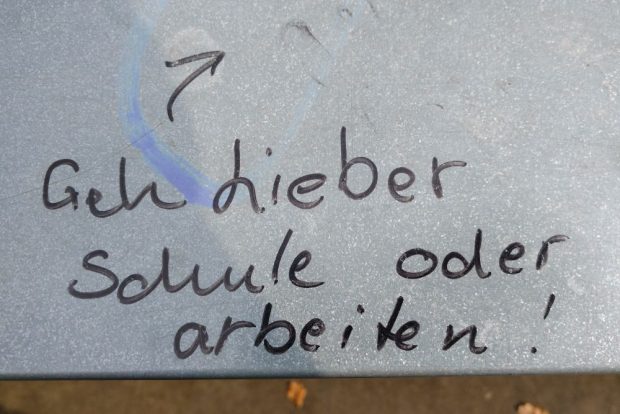 Geh Lieber
Schule oder
arbeiten!